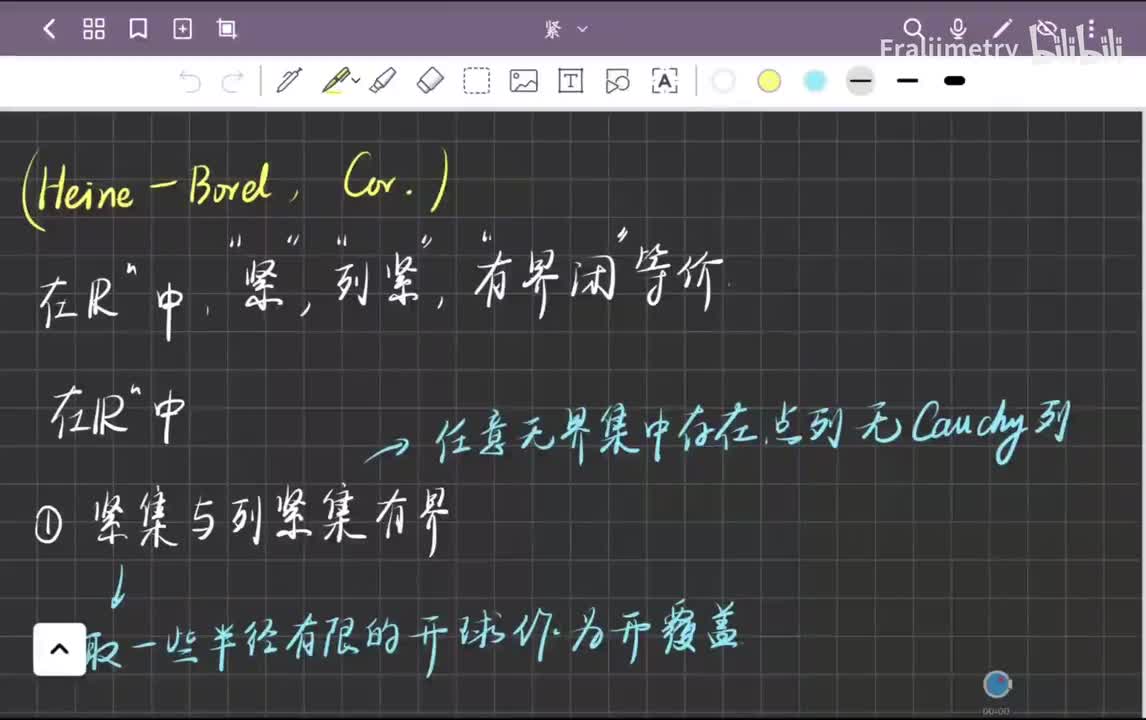 紧
Fraliimetry bilibili
(Heine-Borel, Cor.)
在ℝⁿ中，“紧”，“列紧”，“有界闭”等价.
在ℝⁿ中
→ 任意无界集中存在点列无Cauchy列
① 紧集与列紧集有界
↓
取一些半径有限的开球作为开覆盖
00:00